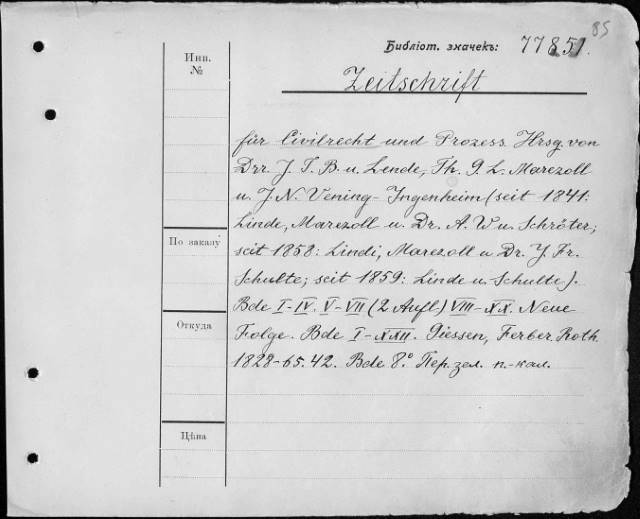 85
Библіот. значекъ: 77851.
Инв.
№
Zeitschrift
für Civilrecht und Prozess. Hrsg. von
Drr J. T. B. u. Linde, Th. G. L. Marezoll
u. J. N. Wening-Ingenheim (seit 1841:
Linde, Marezoll u. Dr. A. W. u. Schröter;
seit 1858: Lindi, Marezoll u Dr. J. Fr.
Schulte; seit 1859: Linde u. Schulte).
Bde I-IV. V-VII (2 Aufl) VIII-XX. Neue
Folge. Bde I-XXII. Giessen, Ferber. Roth
1828-65. 42. Bde. 8° Пер. зел. п.-кал.
По заказу
Откуда
Цѣна